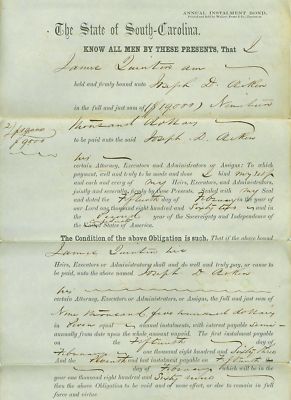 ANNUAL INSTALMENT BOND.
The State of South-Carolina.
KNOW ALL MEN BY THESE PRESENTS, That I
James
am
held and firmly bound unto Joseph D. Aiken
in the full and just sum of ($19000) Nineteen
2/$19000
$9500
thousand dollars
to be paid unto the said Joseph D. Aiken
his
certain Attorney, Executors and Administrators or Assigns: To which
payment, well and truly to be made and done I bind my self
and each and every of my Heirs, Executors, and Administrators,
jointly and severally, firmly by these Presents. Sealed with my Seal
and dated the fifteenth day of February in the year of
our Lord one thousand eight hundred and Sixty two and in
the second year of the Sovereignty and Independence of
the States of America.
The Condition of the above Obligation is such, That if the above bound
James his
Heirs, Executors or Administrators shall do and well and truly, pay, or cause to
be paid, unto the above named Joseph D Aiken
his
certain Attorney, Executors, or Administrators, or Assigns, the full and just sum of
Nine thousand five hundred dollars
in equal annual instalments, with interest payable
annually from date upon the whole amount unpaid. The first instalment payable
on the fifteenth day of
February one thousand eight hundred and Sixty three
And the and last instalment payable on fifteenth
day of February which will be in the
year one thousand eight hundred and Sixty
then the above Obligation to be void and of none effect, or due to remain in full
force and virtue